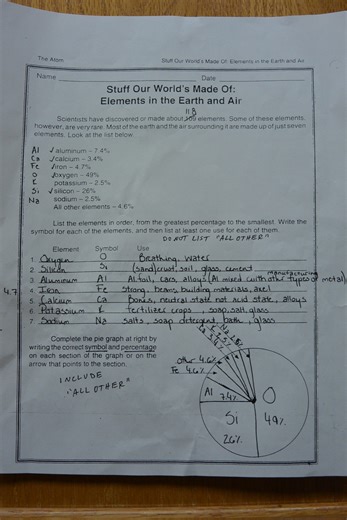 The Atom Stuff Our World's Made Of: Elements in the Earth and Air
Name Date
Stuff Our World's Made Of:
Elements in the Earth and Air
118
Scientists have discovered or made about 109 elements. Some of these elements,
however, are very rare. Most of the earth and the air surrounding it are made up of just seven
elements. Look at the list below.
Al ✓aluminum – 7.4%
Ca ✓calcium – 3.4%
Fe ✓iron – 4.7%
O ✓oxygen – 49%
K potassium – 2.5%
Si ✓silicon – 26%
Na sodium – 2.5%
All other elements – 4.6%
List the elements in order, from the greatest percentage to the smallest. Write the
symbol for each of the elements, and then list at least one use for each of them.
DO NOT LIST "ALL OTHER"
Element Symbol Use
1. Oxygen O Breathing, water
2. Silicon Si (sand) crust, soil, glass, cement
manufacturing
3. Aluminum Al Al foil, cars, alloys (Al mixed with other types of metal)
4.7 4. Iron Fe Strong, beams, building materials,
5. Calcium Ca Bones, neutral state not acid state, alloys
6. Potassium K fertilizer crops, soap, salt, glass
7. Sodium Na Salts, soap detergent, bath, glass
Complete the pie graph at right by
writing the correct symbol and percentage
on each section of the graph or on the
arrow that points to the section.
INCLUDE
"ALL OTHER"
Na 2.5%
K 2.5%
Ca 3.4%
other 4.6%
Fe 4.6%
Al 7.4%
O
49%
Si
26%